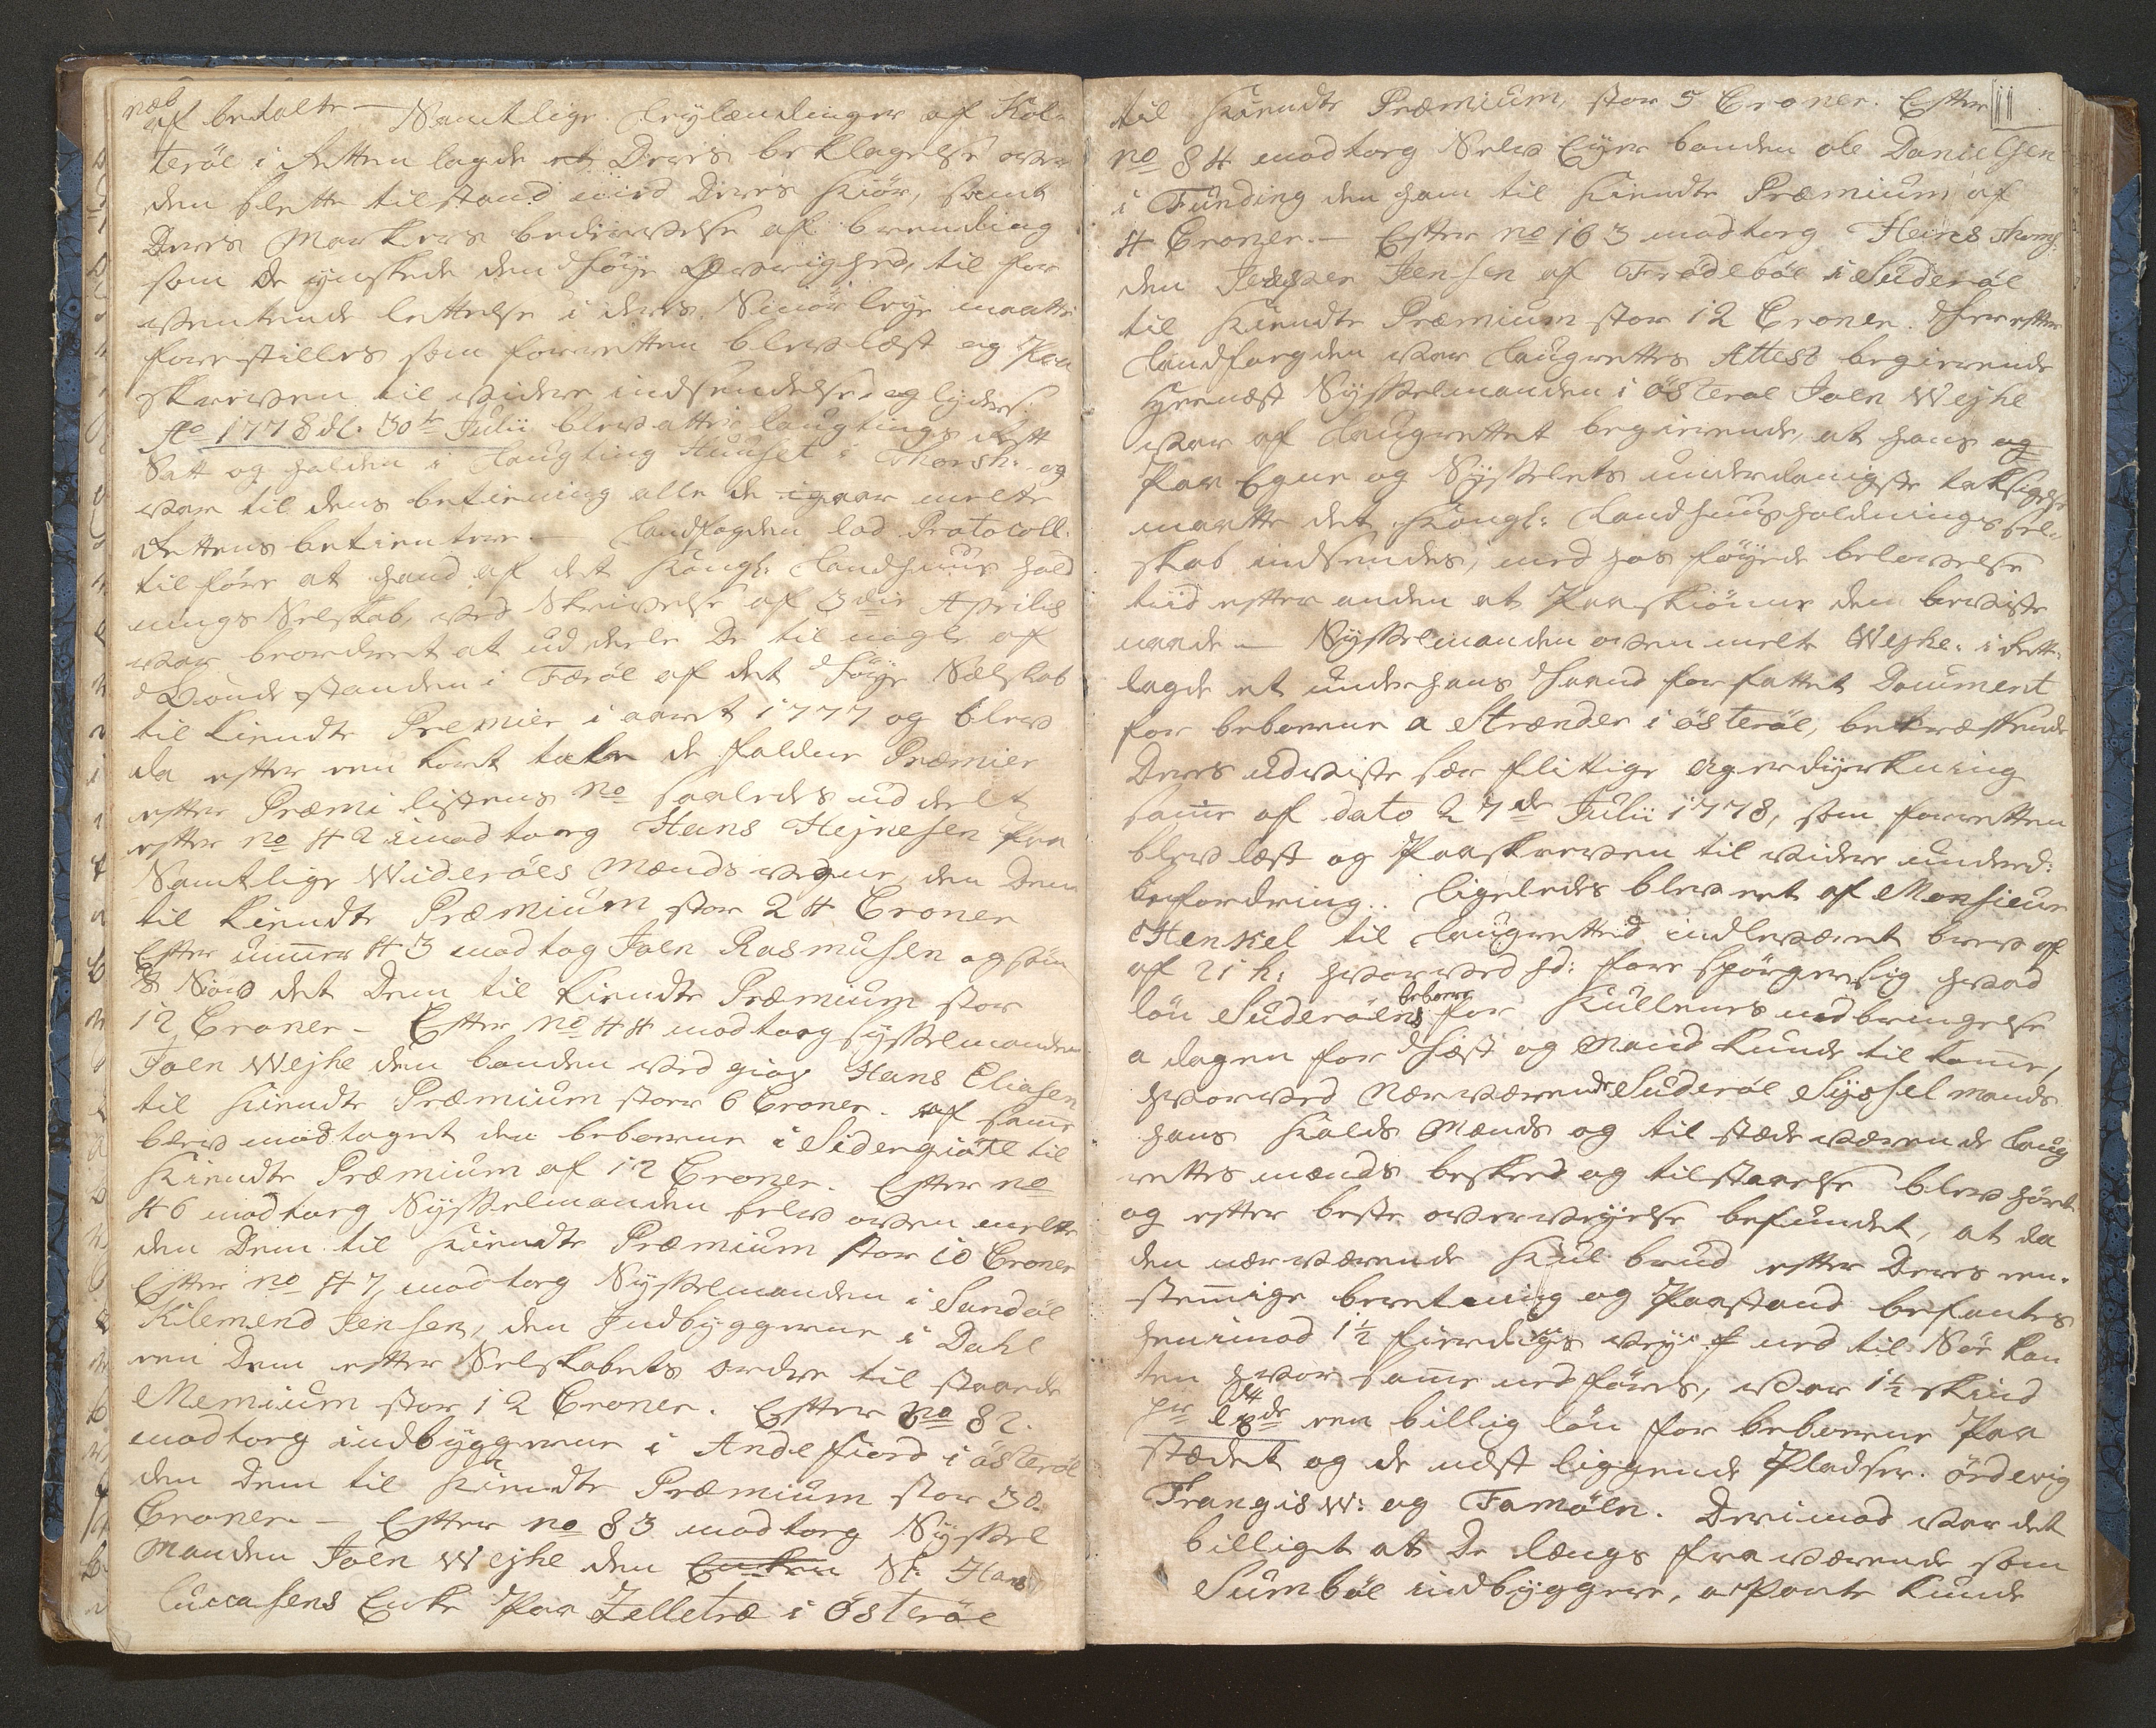 af betalte — Samtlige Leylændinger af Kol-
teröe i Retten lagde et Deris beklagelse over
den slette tilstand med Deris Kiör, samt
Deres Markers bedervelse af brending
som De ynskede den Höye Øvrighed, til for
ventende lettelse i deres Smör leye maatte
forestilles som for retten blev læst og Paa
skreven til videre indsendelse og lyder.
Ao 1778 d. 30te Julii blev atter laugtings Rett
Satt og holden i Laugting Huuset i Thorsh: og
var til dens betiening alle de igaar melte
Rettens betientere. — Landfogden lod Protocoll.
tilföre at hand af det Kongl: Landhuus hold
nings Selskab, ved Skrivelse af 3die Aprilis
var beordret at uddeele De til nogle af
Bonde standen i Færöe af det Höye Selskab
til kiendte Premier i aaret 1777 og blev
da efter een kort tale de faldne Præmier
efter Præmi listens No saaledes uddeelt
efter No 42 imodtoog Hans Hejnesen Paa
Samtlige Wideröes Mænds vegne, den Dem
til kiendte Præmium stor 24 Croner
Efter numer 43 modtog Joen Rasmusen og sön
det Dem til kiendte Præmium stor
12 Croner — Efter No 44 modtoog Sysselmanden
Joen Wejhe den bonden ved giov Hans Eliasen
til kiendte Præmium stor 6 Croner. af samme
blev modtaget den beboerne i Sidergiöte til
kiendte Præmium af 12 Croner. Efter No
46 modtoog Sysselmanden selv ovenmelte
den Dem til kiendte Præmium stor 10 Croner
Efter No 47, modtoog Sysselmanden i Sandöe
Klemend Jensen, den Indbyggerne i Dahl
een Dem efter Selskabets ordre til staaede
Memium stor 12 Croner. Efter No 82.
modtoog indbyggerne i Andefiord i österöe
den Dem til kiendte Præmium stor 30.
Croner. — Efter No 83 modtoog Syssel
Manden Joen Wejhe den Enken Sl: Hans
Luccasens Enke Paa Zelletræ i Österöe
11
til kiendte Præmium, stor 5 Croner. Efter
No 84 modtoog Selv Eyer bonden ole Danielsen
i Funding den ham til kiendte Præmium af
4 Croner. — Efter No 163 modtoog Heines Thoms:
den Jesper Jensen af Frodeböe i Suderöe
til kiendte Præmium stor 12 Croner. Herefter
Landfogden var Laugrettes Attest begierende
Hernæst Sysselmanden i österöe Joen Wejhe
var af Laugrettet begierende, at hans og
Paa Egne og Sysselets underdanigste taksigelse
maatte det Kongl: Landhuusholdnings sel-
skab indsendes, med hos föyede belovelse
tiid efter anden at Paaskiönne den beviste
naade — Sysselmanden ovenmelte Wejhe i Rette
lagde et under hans Haand forfattet Document
for beboerne a Strænder i österöe, bekræftende
Deres udviste sær flittige Agerdyrkning
samme af dato 27de Julii 1778, som for retten
blev læst og Paaskreven til videre underd:
befordring.. Ligeledes blev eet af Monsieur
Henkel til Laugrettet indleveret brev af
af 21 h: hvorved hd: fore spörger sig hvad
lön Suderöens beboere for Kullenes nedbringelse
a dagen for Hæst og Mand kunde tilkomme,
hvorved Nærværende Suderöe Syssel mands
hans Kalds Mænds og til stæde værende Laug
rettes mænds beskeed og tilstaaelse blev hört
og efter beste overveyelse befundet, at da
den nærværende Kul brud efter Deres een-
stemmige beretning og Paastand befantes
henimod 1½ fierdings vey ned til Söe kan
ten hvor samme nedföres, var 1½ skind
pr een billig lön for beboerne Paa
stædet og de næst liggende Pladser. örderig
Frangisw: og Famöen. Derimod var det
billigt at De længs fraværende som
Sumböe indbyggere, aparte kunde